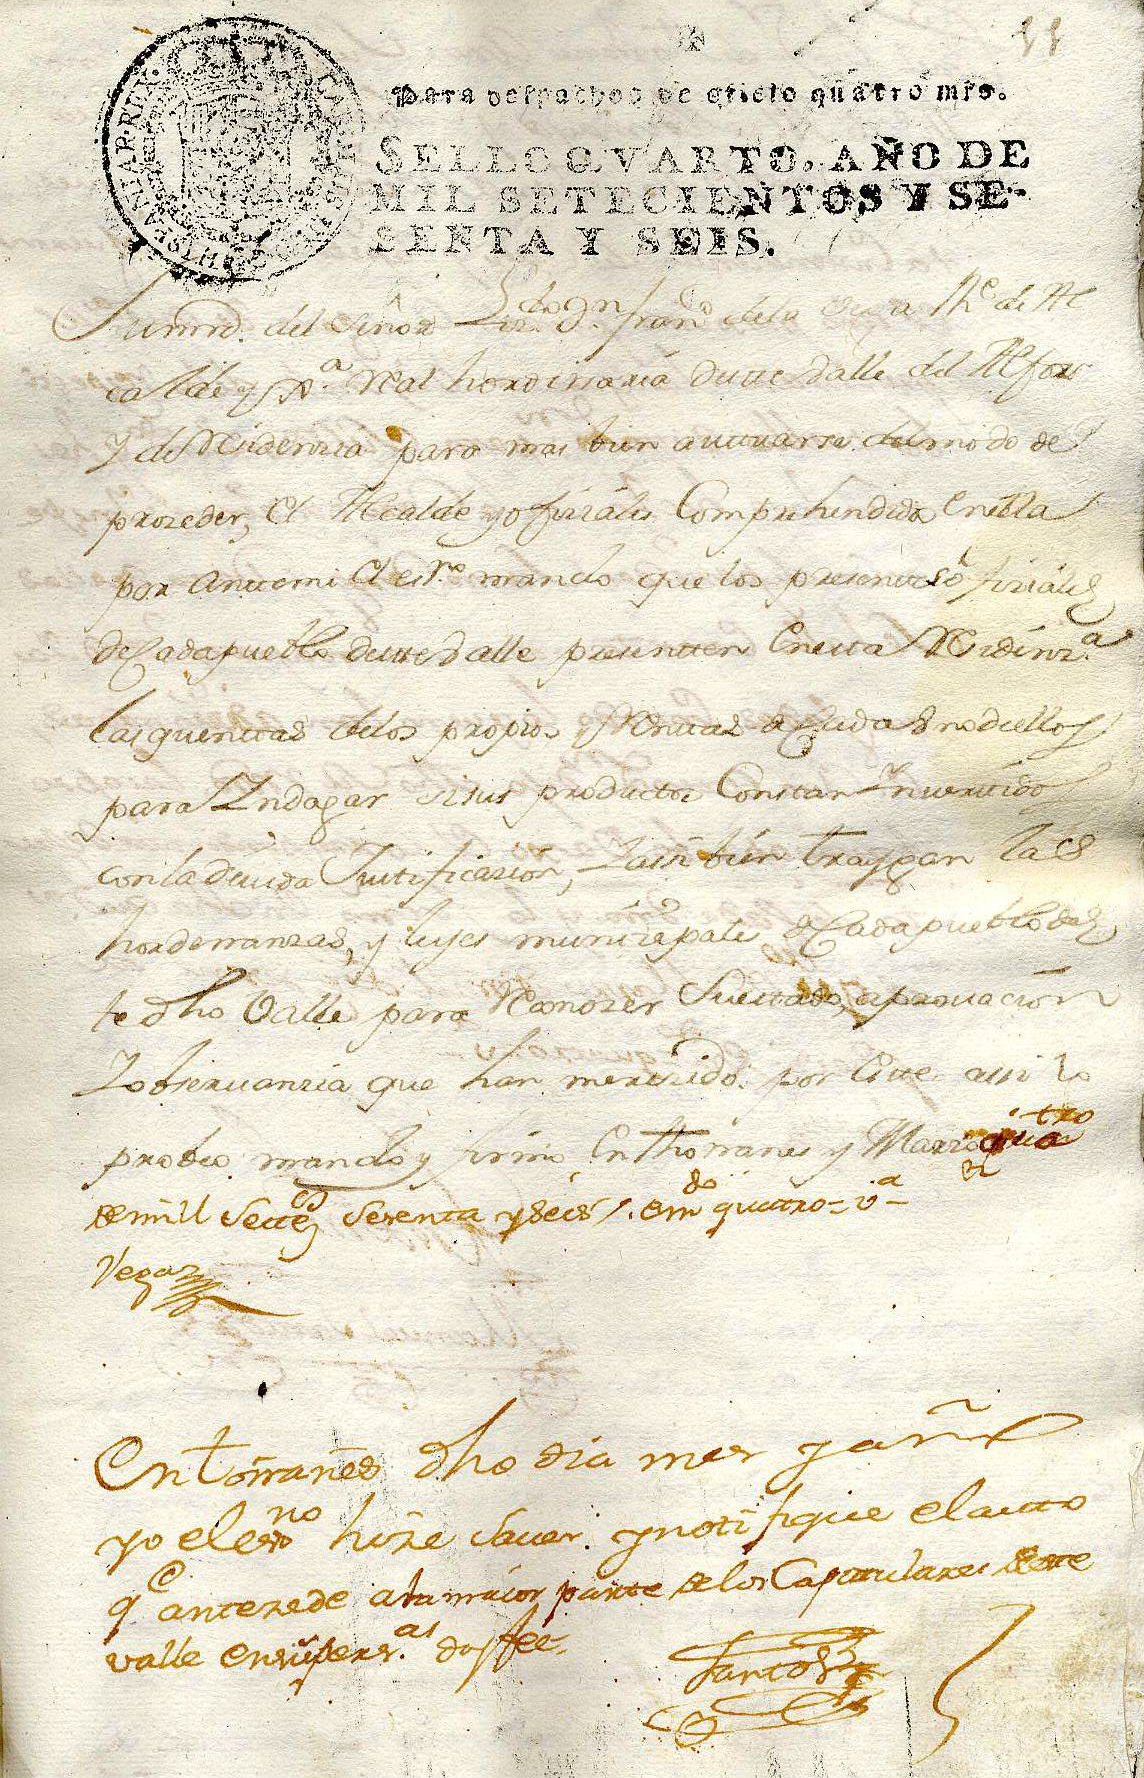 11
Para despachos de oficio quatro mrs.
SELLO QVARTO, AÑO DE
MIL SETECIENTOS Y SE-
SENTA Y SEIS.
Su mrd. del Señor Lizdo Dn franco de la Vega The de Al
calde y Ma. Real hordinaria deste Valle del Alfoz
y de Residenzia para mas bien autuarse del modo de
prozeder, el Alcalde y ofiziales Comprehendidos en ella
por antemi el esno. mando que los presentes ofiziales
de Cada pueblo deste Valle presenten en esta Residenza
las quentas de los propios y Rentas de Cada Uno de ellos
para Indagar si sus productos Constan Invertidos
con la devida Justificazion, y assi bien traygan las
hordenanzas, y leyes munizipales de Cada pueblo des
te dho Valle para Reconozer Su estado, aprovacion
y observanzia que han merezido. por este assi lo
probeo mando y firmo en thoñanes y Marzo quatro
de mill Settes Sesenta y seis /. emdo quatro = Va =
Vega
En toñanes dho dia mes y año
yo el esno hize saver y notifique el auto
qe antezede a la maior parte de los Capitulares deste
valle en sus persas. doy fee.
Santos